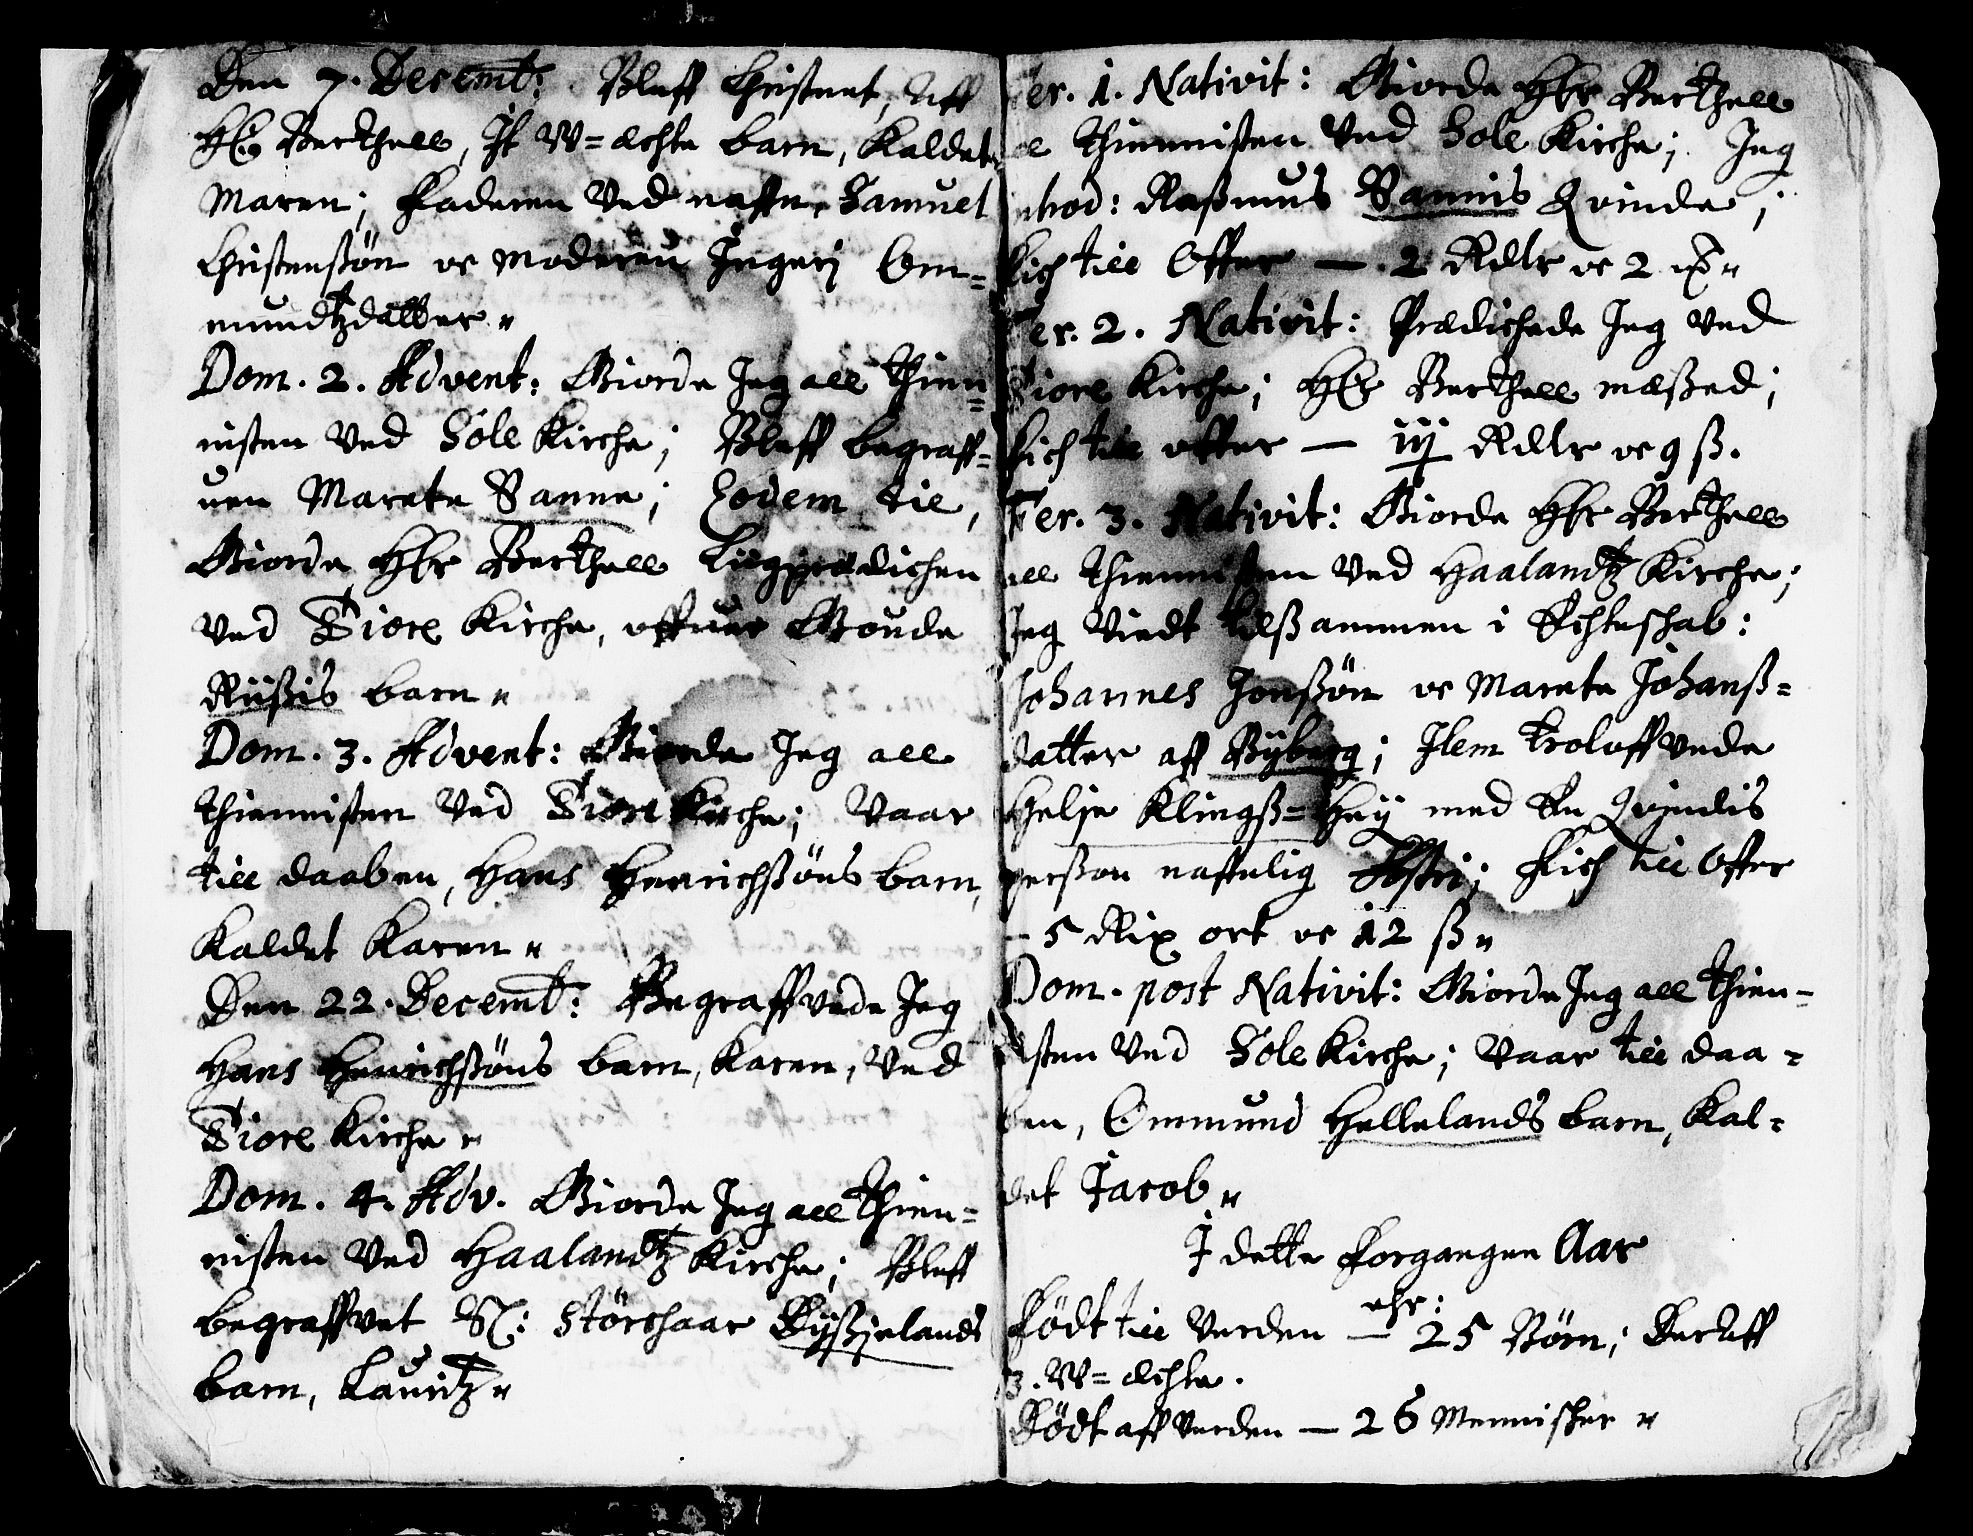 Den 7. Decembr: Bleff Christnet, Aff
Hr Berthell, It W=ächte barn, Kaldet
Maren; Faderen Ved naffn, Samuel
Christenßön oc Moderen Ingerj Om=
mundtzdatter
Dom. 2. Advent: Giorde Jeg all Thien=
nisten Ved Sole Kirche; Bleff begraff=
uen Marete Sanne; Eodem die,
Giorde Hr Berthell Liigprædichen
Ved Tiore Kirche, offuer Goude
Riißis barn
Dom. 3. Advent: Giorde Jeg all
Thiennisten Ved Tiore Kirche; Vaar
till daaben, Hans Henrichßöns barn,
Kaldet Karen
Den 22. Decembr: Begraffvede Jeg
Hans Henrichßöns barn, Karen, Ved
Tiore Kirche
Dom. 4. Adv. Giorde Jeg all Thien=
nisten Ved Haalandtz Kirche; Bleff
begraffvet Störchaar Byßielands
barn, Lauritz
Fer. 1. Nativit: Giorde Hr Berthell
all Thiennisten Ved Sole Kirche; Jeg
introd: Raßmus Sannis Qvinde;
Fich till Offer — 2 Rdlr oc 2
Fer. 2. Nativit: Prædichede Jeg Ved
Tiore Kirche; Hr Berthell mæßed;
Fich till offer — iij Rdlr oc 9 ß.
Fer. 3. Nativit: Giorde Hr Berthell
all Thiennisten Ved Haalandtz Kirche;
Jeg Viedt tilßammen i Echteschab:
Johannes Jonßön oc Marete Johanß=
datter aff Byberg; Item troloffvede
Helje Klingß=Hey med En Qvindis
perßon naffnlig; Fich till Offer
— 5 Rix ort oc 12 ß
Dom. post Nativit: Giorde Jeg all Thien=
isten Ved Sole Kirche; Vaar till daa=
ben, Ommund Hellelands barn, Kal=
det Jacob
I dette Forgangen Aar
Födt till Verden — 25 Börn; Der Aff
3. W=ächte.
Födt aff Verden — 26 Mennisker